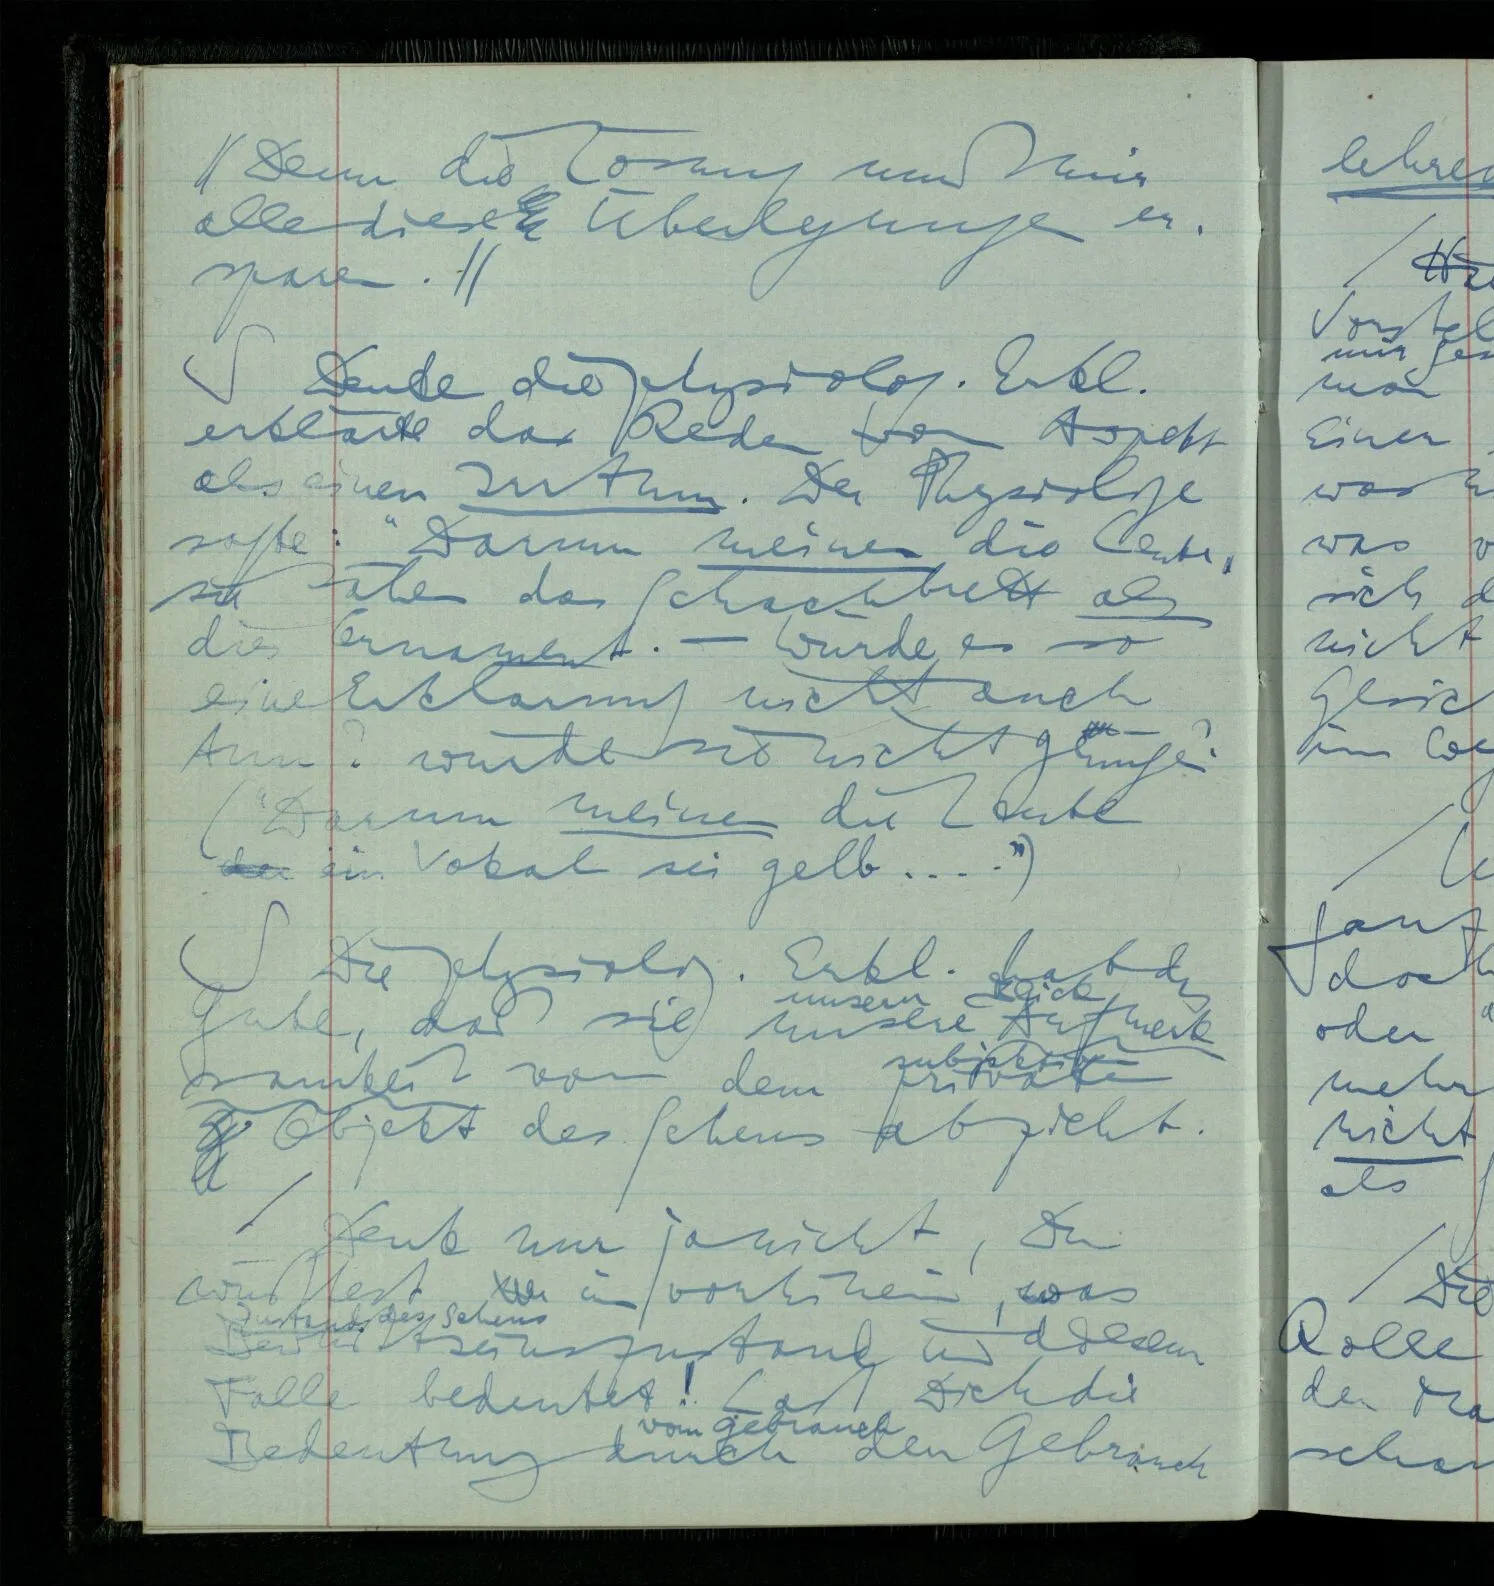 // Denn die Lösung muß mir
alle diese Überlegungen er-
sparen. //
∫ Denke die physiolog. Erkl.
erklärte das Reden vom Aspekt
als einen Irrtum. Der Physiologe
sagte: "Darum meinen die Leute,
sie sähen das Schachbrett als
dies Ornament. — Würde es so
eine Erklärung nicht auch
tun? würde sie nicht genügen?
("Darum meinen die Leute
der ein Vokal sei gelb....")
∫ Die physiolog. Erkl. hat das
unsern Blick
Gute, daß sie unsere Aufmerk
subjektiven
samkeit von dem privaten
Objekt des Sehens abzieht.
/ Denk nur ja nicht, Du
wüßtest im vorhinein, was
Zustand des Sehens
Bewußtseinszustand in diesem
Falle bedeutet! Laß Dich die
vom Gebrauch
Bedeutung durch den Gebrauch
lehren
/
Vorstel
mir
man
Einen
was
was v
sich d
nicht
Gesic
im
/
ganz
doch
oder
mehr
nicht
als
/ Die
Rolle
den